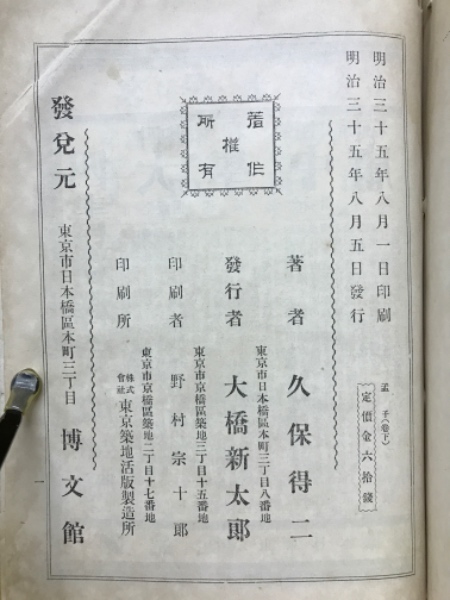 明治三十五年八月一日印刷
明治三十五年八月五日發行
孟子(卷下)
定價金六拾錢
著作
權
所有
著者 久保得二
東京市日本橋區本町三丁目八番地
發行者 大橋新太郎
東京市京橋區築地三丁目十五番地
印刷者 野村宗十郎
東京市京橋區築地二丁目十七番地
印刷所 株式會社 東京築地活版製造所
發兌元 東京市日本橋區本町三丁目 博文館
一